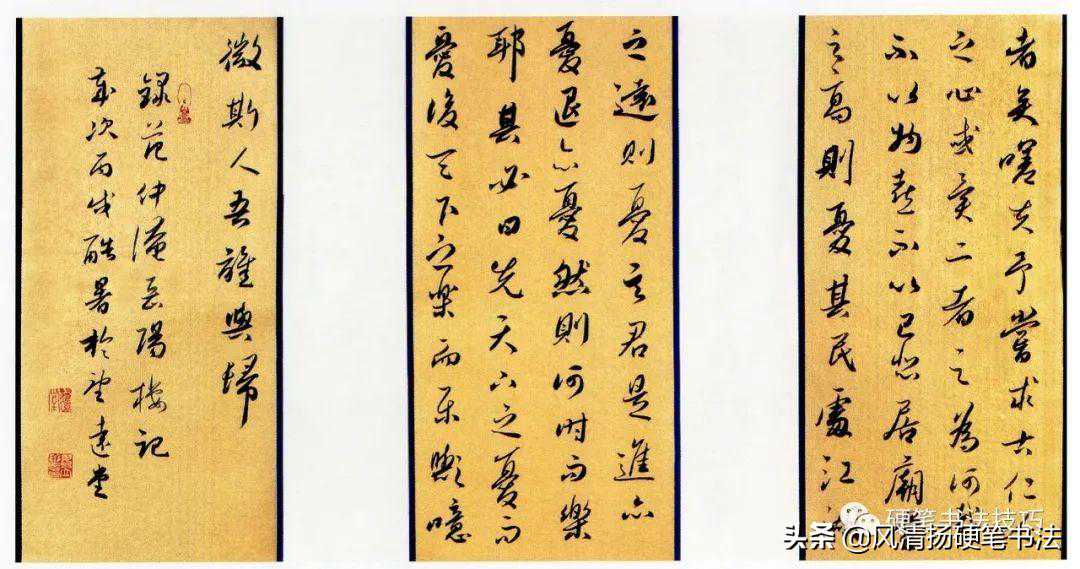 者矣嗟夫予嘗求古仁
之心或異二者之為何
不以物喜不以己悲居廟
之高則憂其民處江
之遠則憂其君是進亦
憂退亦憂然則何時而樂
耶其必曰先天下之憂而
憂後天下之樂而樂歟噫
微斯人吾誰與歸
録范仲淹岳陽楼記
歲次丙戌酷暑於望遠堂
硬笔书法技巧
头条 @风清扬硬笔书法